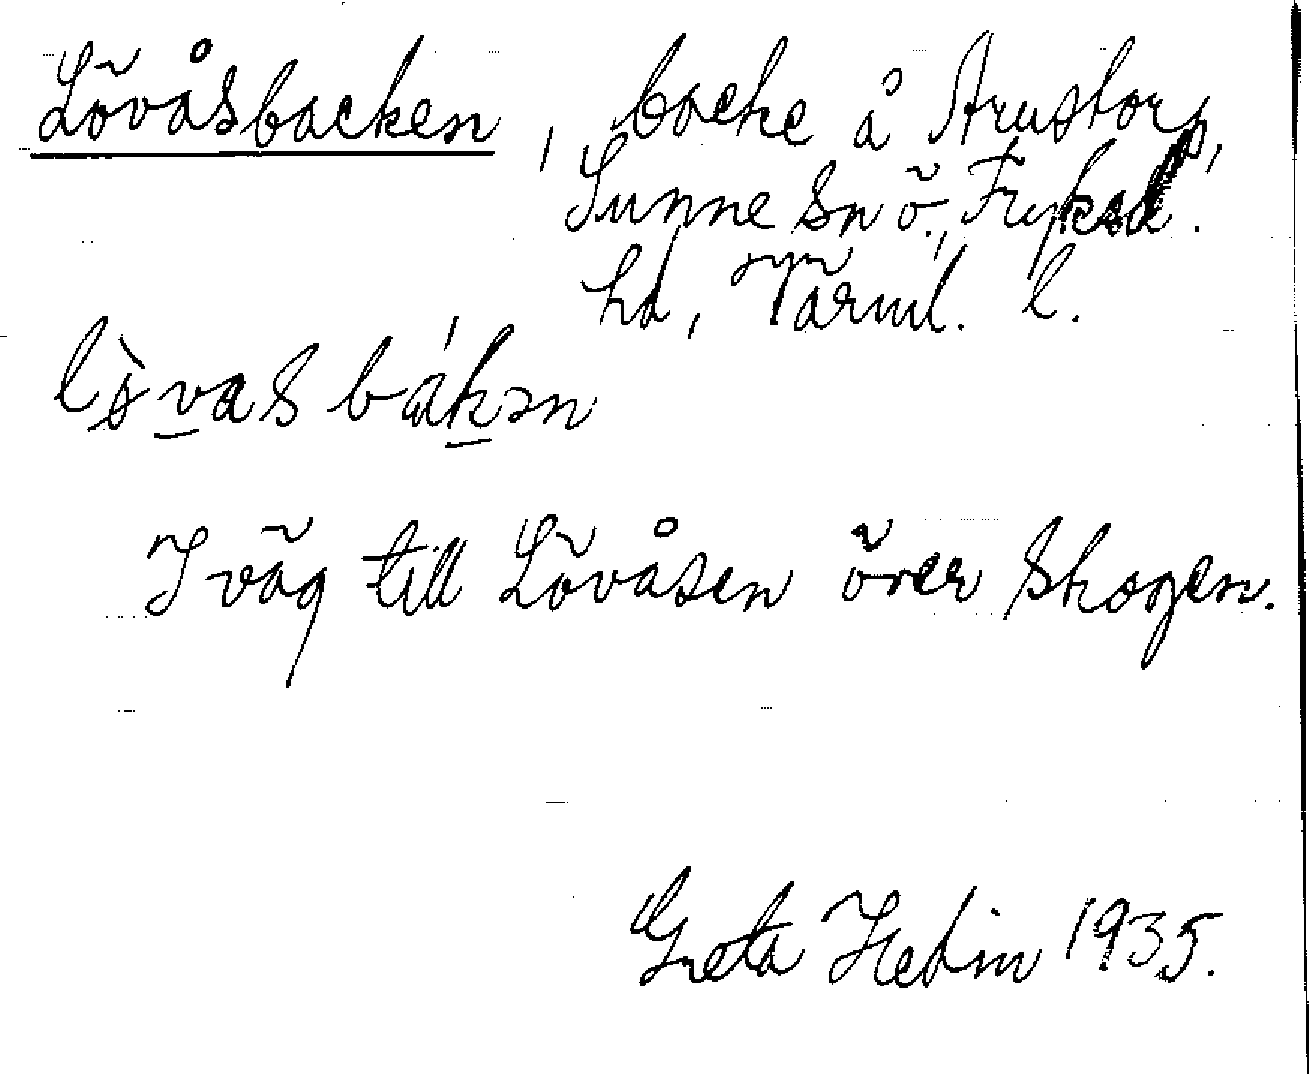 Lövåsbacken, backe å Arnstorp,
Sunne sn ö., Fryksd.
hd, Värml. l.
lö̀vasbákən
I väg till Lövåsen över skogen.
Greta Hedin 1935.